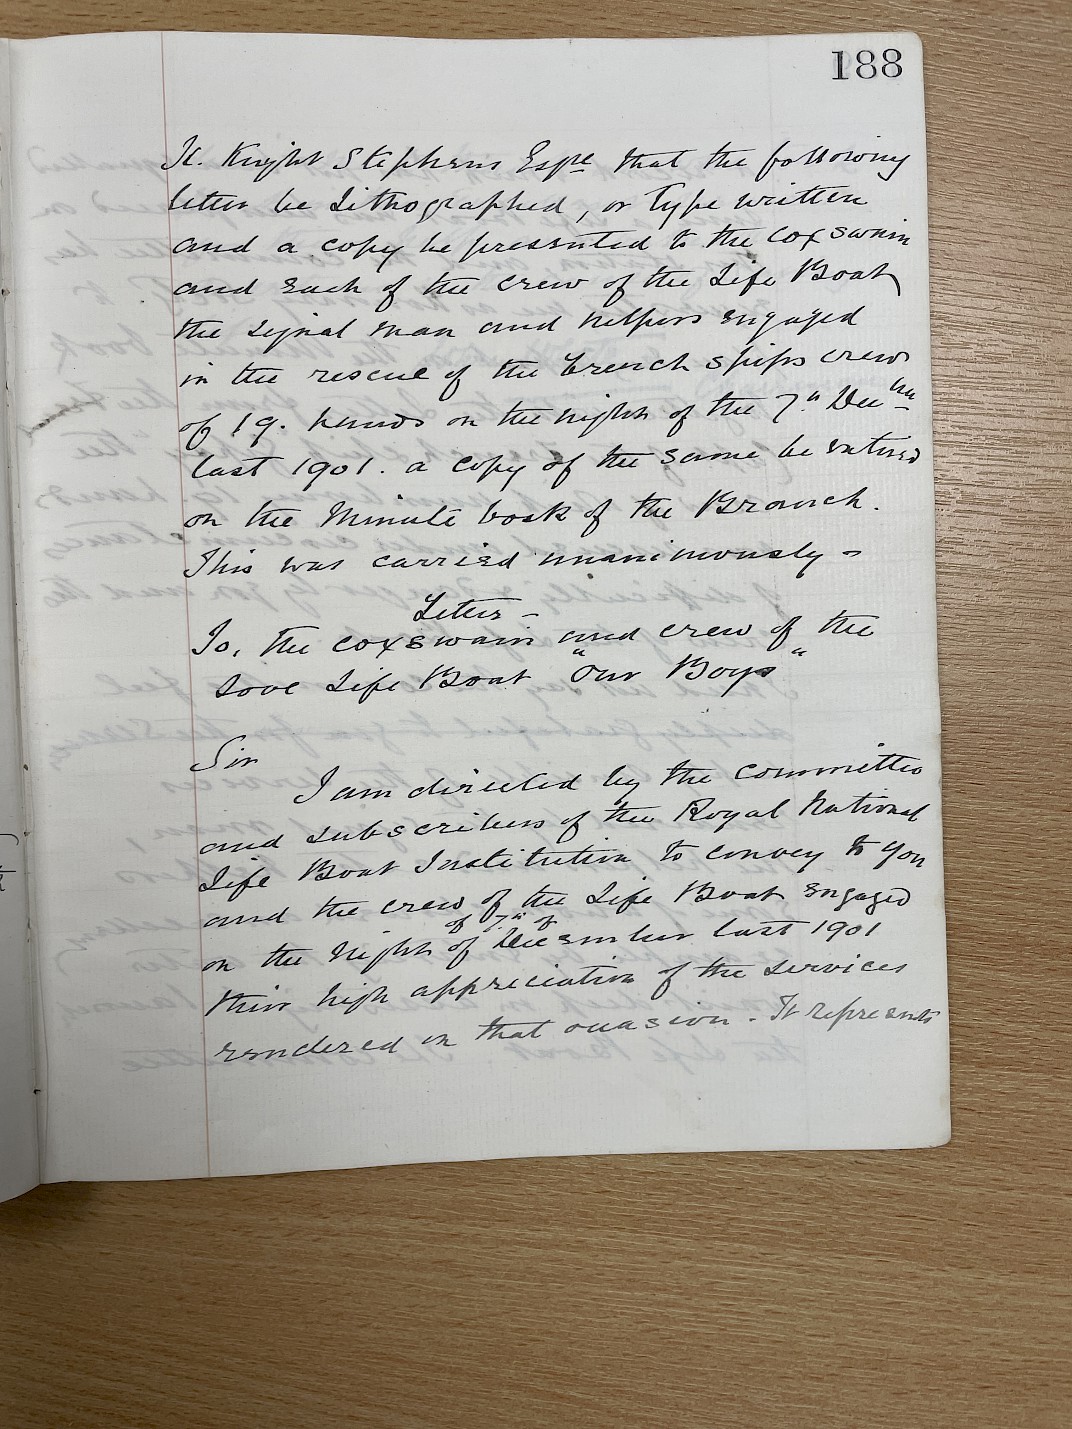 188
H. Knight Stephens Esqre that the following
letter be Lithographed, or Type written
and a copy be presented to the coxswain
and each of the crew of the Life Boat
the signal man and helpers engaged
in the rescue of the French ships crew
of 19. hands on the night of the 7th Decbr
last 1901. a copy of the same be entered
on the Minute book of the Branch.
This was carried unanimously -
Letter -
To, the coxswain and crew of the
Love Life Boat "Our Boys"
Sir
I am directed by the committee
and subscribers of the Royal National
Life Boat Institution to convey to you
and the crew of the Life Boat engaged
of 7th of
on the night of December last 1901
their high appreciation of the services
rendered on that occasion. It represents